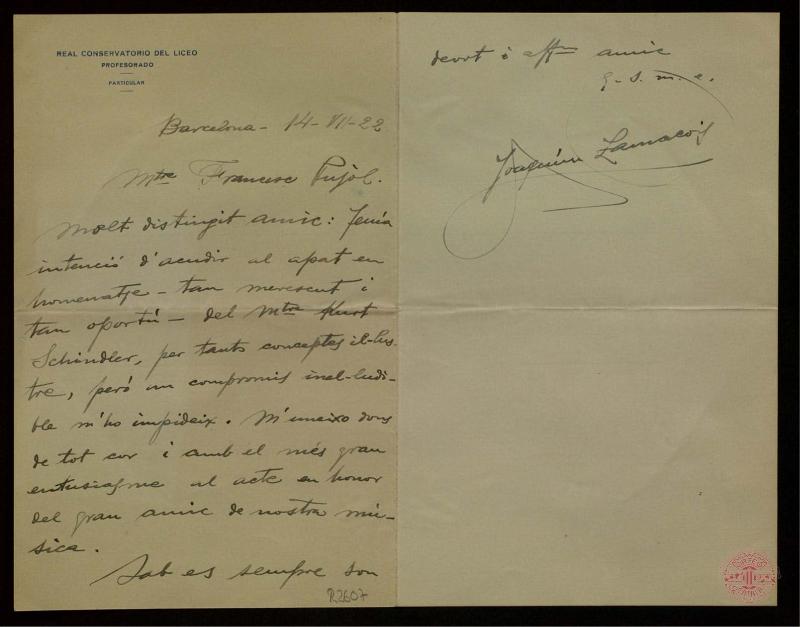 REAL CONSERVATORIO DEL LICEO
PROFESORADO
PARTICULAR
Barcelona - 14-VII-22
Mtre Francesc Pujol.
Molt distingit amic: Tenía
intenció d'acudir al apat en
homenatje - tan merescut i
tan oportú - del Mtre Kurt
Schindler, per tants conceptes il-lus-
tre, peró un compromis inel-ludi-
ble m'ho impideix. M'uneixo dons
de tot cor i amb el més gran
entusiasme al acte en honor
del gran amic de nostra mú-
sica.
Sab es sempre son
R2607
devot i affm amic
q. s. m. e.
Joaquim Zamacois